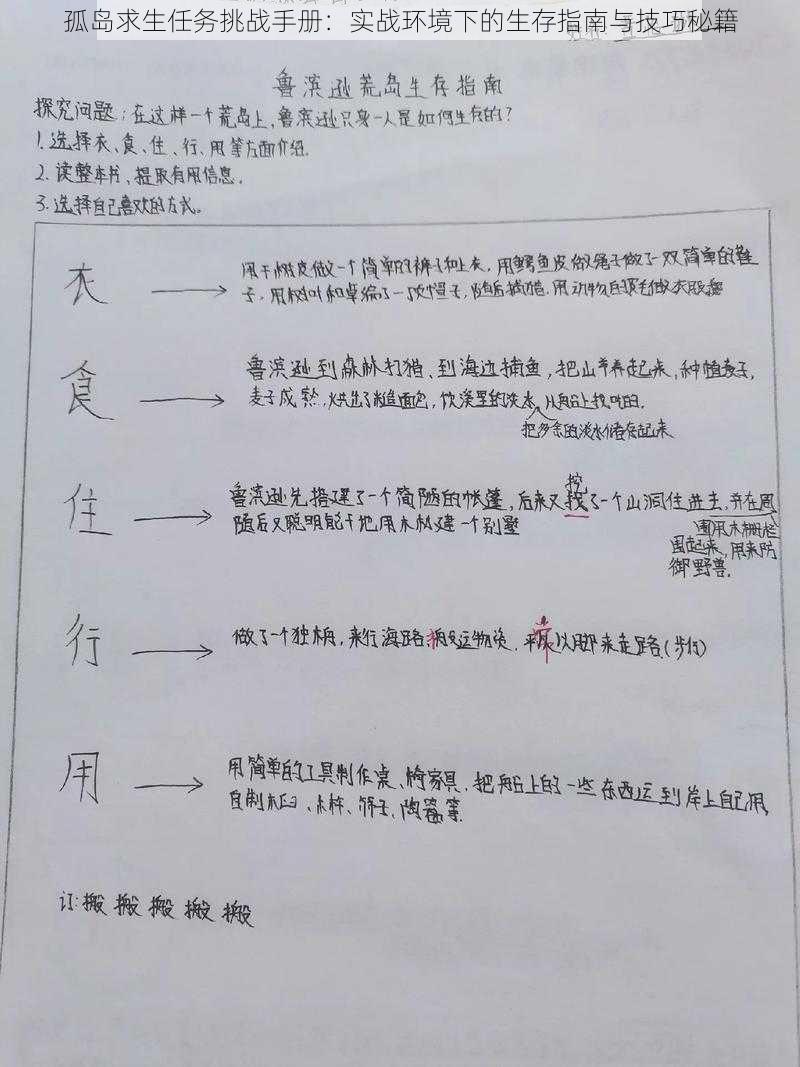 孤岛求生任务挑战手册：实战环境下的生存指南与技巧秘籍
鲁滨逊荒岛生存指南
探究问题：在这样一个荒岛上，鲁滨逊只身一人是如何生存的？
1.选择衣、食、住、行、用等方面介绍.
2.读整本书，提取有用信息.
3.选择自己喜欢的方式。
衣
用干树皮做一个简单的裤子和上衣，用鳄鱼皮做绳子做了一双简单的鞋
子，用树叶和草编了一顶帽子，随后捕猎.用动物自皮毛做衣服
食
鲁滨逊到森林打猎、到海边捕鱼，把山羊养起来，种植麦子，
麦子成熟，烘出了面包，饮溪里的淡水，从船上找吃的.
把多余的淡水储存起来
住
鲁滨逊先搭建了一个简陋的帐篷，后来又挖了一个山洞住进去，并在周
围用木栅栏
围起来，用来防
御野兽.
随后又聪明能干地用木材建一个别墅
行
做了一个独木舟，来行海路搬运物资.平常以脚来走路(步行)
用
用简单的工具制作桌、椅家具，把船上的一些东西运到岸上自己用，
自制木臼、木杵、筛子、陶器等.
订:搬 搬 搬 搬 搬